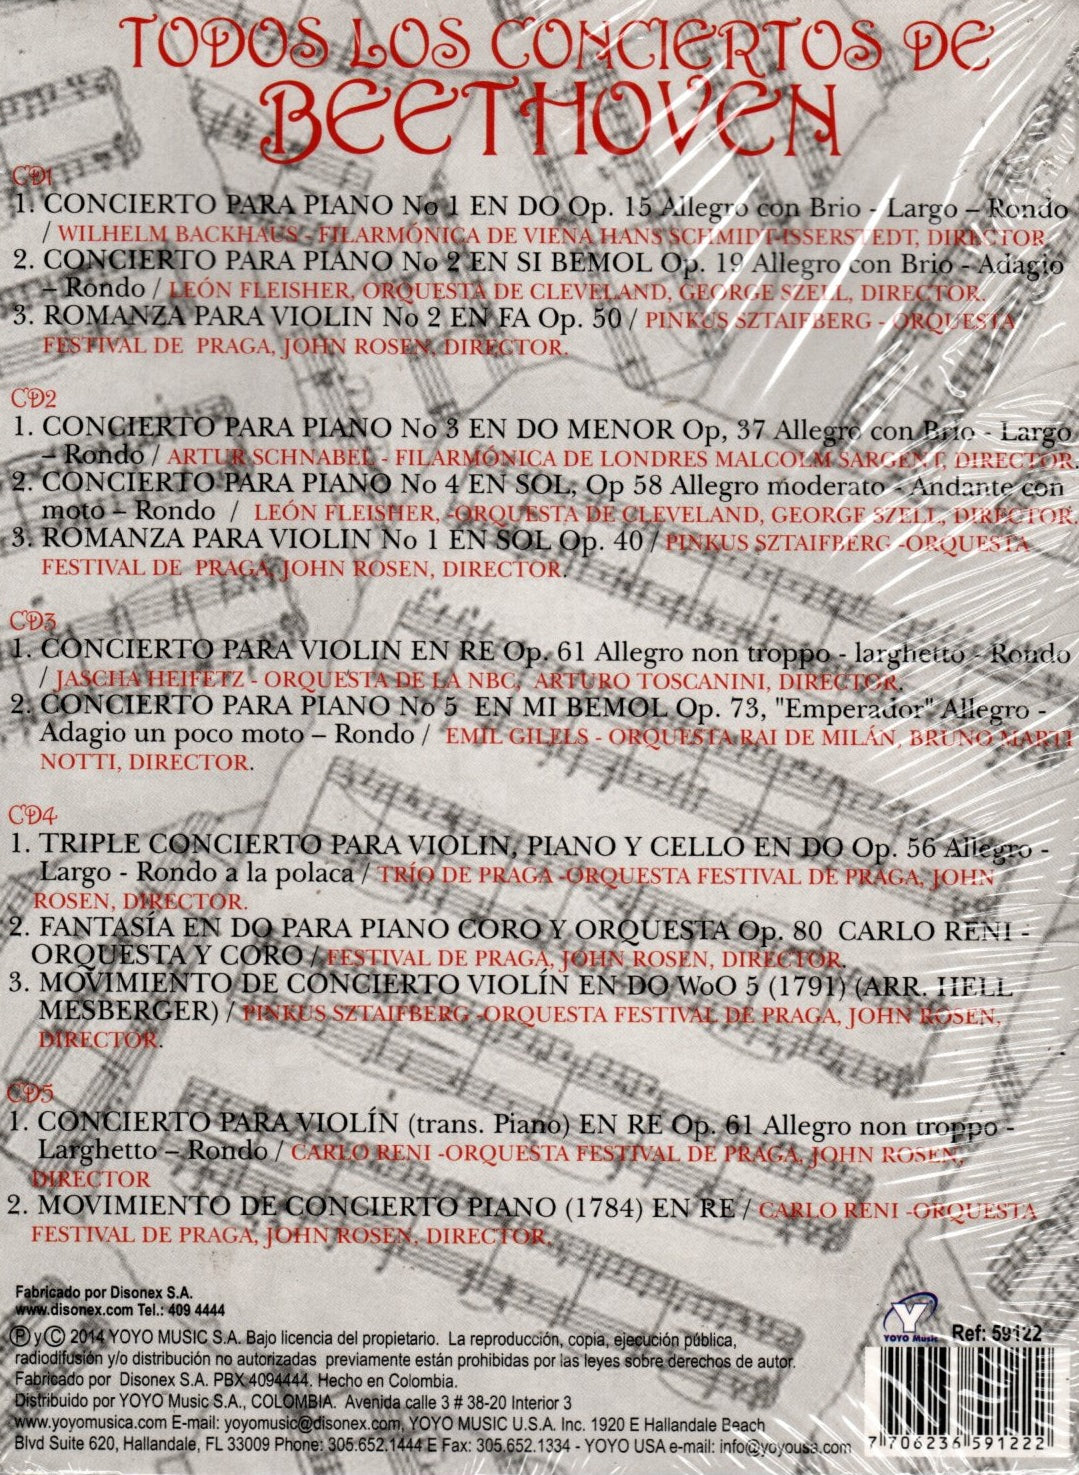 TODOS LOS CONCIERTOS DE
BEETHOVEN
CD1
1. CONCIERTO PARA PIANO No 1 EN DO Op. 15 Allegro con Brio - Largo – Rondo
/ WILHELM BACKHAUS - FILARMÓNICA DE VIENA HANS SCHMIDT-ISSERSTEDT, DIRECTOR.
2. CONCIERTO PARA PIANO No 2 EN SI BEMOL Op. 19 Allegro con Brio - Adagio
– Rondo / LEÓN FLEISHER, ORQUESTA DE CLEVELAND, GEORGE SZELL, DIRECTOR.
3. ROMANZA PARA VIOLIN No 2 EN FA Op. 50 / PINKUS SZTAIFBERG - ORQUESTA
FESTIVAL DE PRAGA, JOHN ROSEN, DIRECTOR.
CD2
1. CONCIERTO PARA PIANO No 3 EN DO MENOR Op, 37 Allegro con Brio - Largo
– Rondo / ARTUR SCHNABEL - FILARMÓNICA DE LONDRES MALCOLM SARGENT, DIRECTOR.
2. CONCIERTO PARA PIANO No 4 EN SOL, Op 58 Allegro moderato - Andante con
moto – Rondo / LEÓN FLEISHER, -ORQUESTA DE CLEVELAND, GEORGE SZELL, DIRECTOR.
3. ROMANZA PARA VIOLIN No 1 EN SOL Op. 40 / PINKUS SZTAIFBERG -ORQUESTA
FESTIVAL DE PRAGA, JOHN ROSEN, DIRECTOR.
CD3
1. CONCIERTO PARA VIOLIN EN RE Op. 61 Allegro non troppo - larghetto - Rondo
/ JASCHA HEIFETZ - ORQUESTA DE LA NBC, ARTURO TOSCANINI, DIRECTOR.
2. CONCIERTO PARA PIANO No 5 EN MI BEMOL Op. 73, "Emperador" Allegro -
Adagio un poco moto – Rondo / EMIL GILELS - ORQUESTA RAI DE MILÁN, BRUNO MARTI
NOTTI, DIRECTOR.
CD4
1. TRIPLE CONCIERTO PARA VIOLIN, PIANO Y CELLO EN DO Op. 56 Allegro -
Largo - Rondo a la polaca / TRÍO DE PRAGA -ORQUESTA FESTIVAL DE PRAGA, JOHN
ROSEN, DIRECTOR.
2. FANTASÍA EN DO PARA PIANO CORO Y ORQUESTA Op. 80 CARLO RENI -
ORQUESTA Y CORO / FESTIVAL DE PRAGA, JOHN ROSEN, DIRECTOR.
3. MOVIMIENTO DE CONCIERTO VIOLÍN EN DO WoO 5 (1791) (ARR. HELL
MESBERGER) / PINKUS SZTAIFBERG -ORQUESTA FESTIVAL DE PRAGA, JOHN ROSEN,
DIRECTOR.
CD5
1. CONCIERTO PARA VIOLÍN (trans. Piano) EN RE Op. 61 Allegro non troppo -
Larghetto – Rondo / CARLO RENI -ORQUESTA FESTIVAL DE PRAGA, JOHN ROSEN,
DIRECTOR
2. MOVIMIENTO DE CONCIERTO PIANO (1784) EN RE / CARLO RENI -ORQUESTA
FESTIVAL DE PRAGA, JOHN ROSEN, DIRECTOR.
Fabricado por Disonex S.A.
www.disonex.com Tel.: 409 4444
Ⓟ y Ⓒ 2014 YOYO MUSIC S.A. Bajo licencia del propietario. La reproducción, copia, ejecución pública,
radiodifusión y/o distribución no autorizadas previamente están prohibidas por las leyes sobre derechos de autor.
Fabricado por Disonex S.A. PBX 4094444. Hecho en Colombia.
Distribuido por YOYO Music S.A., COLOMBIA. Avenida calle 3 # 38-20 Interior 3
www.yoyomusica.com E-mail: yoyomusic@disonex.com, YOYO MUSIC U.S.A. Inc. 1920 E Hallandale Beach
Blvd Suite 620, Hallandale, FL 33009 Phone: 305.652.1444 E Fax: 305.652.1334 - YOYO USA e-mail: info@yoyousa.com
Y
YOYO Music
Ref: 59122
7 706236 591222